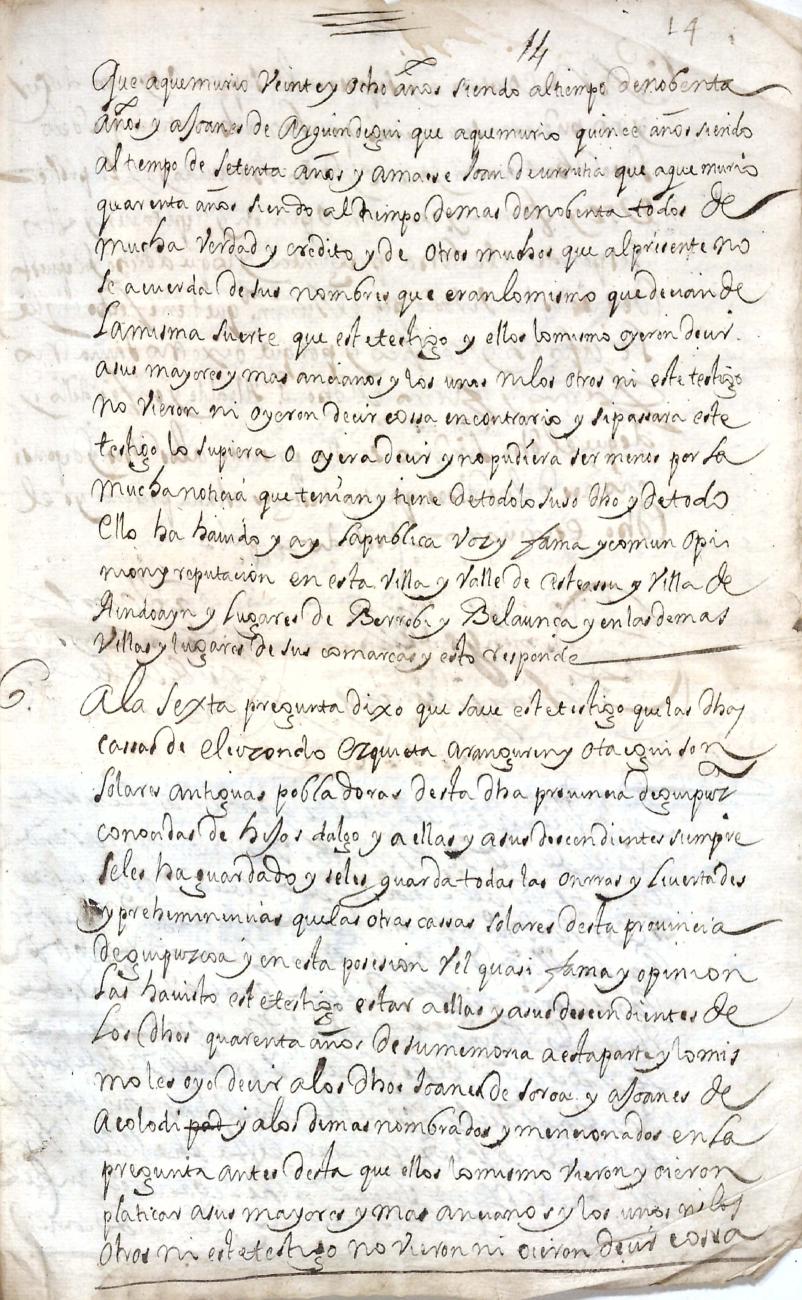 14
14
Que aquemurio Veinte y ocho años siendo altiempo denobenta
años y aJoanes de Arguindegui que aquemurio quince años siendo
altiempo de setenta años y amaese Joan deurrutia que aquemurio
quarenta años siendo altiempo demas denobenta todos de
mucha Verdad y credito y de otros muchos que alpresente no
se acuerda desus nombres que eranlomismo quedecian de
Lamisma suerte que estetestigo y ellos lomismo oyeron decir
asus mayores y mas ancianos y los unos nilos otros ni estetestigo
no vieron ni oyeron decir cossa encontrario y sipassara este
testigo lo supiera o oyera decir y no pudiera ser menos por la
muchanoticia que tenian y tiene detodolo suso dho y detodo
Ello ha havido y ay lapublica voz y fama y comun opi
nion y reputacion en esta villa y Valle de asteassu y Villa de
Aindoayn y lugares de Berrobi y Belaunça y enlasdemas
Villas y lugares de sus comarcas y esto responde
6.
Ala sexta pregunta dixo que save estetestigo quelas dhas
cassas de elicozondo Ezquieta aranguren y otaegui son
solares antiguas pobladoras desta dha provincia deguipuz
conocidas de hijos dalgo y a ellas y asusdescendientes siempre
seles haguardado y seles guarda todas las onrras y livertades
y preheminencias quelas otras cassas solares desta provincia
deguipuzcoa y en esta posesion vel quasi fama y opinion
las havisto estetestigo estar aellas y asusdescendientes de
Los dhos quarenta años desumemoria aestaparte y lomis
mo les oyo decir alos dhos Joanes de soroa y aJoanes de
Acolodi y alosdemas nombrados y mencionados en la
pregunta antes desta que ellos lomismo vieron y oieron
platicar asus mayores y mas ancianos y los unos nilos
otros ni estetestigo no vieron ni oieron decir cossa